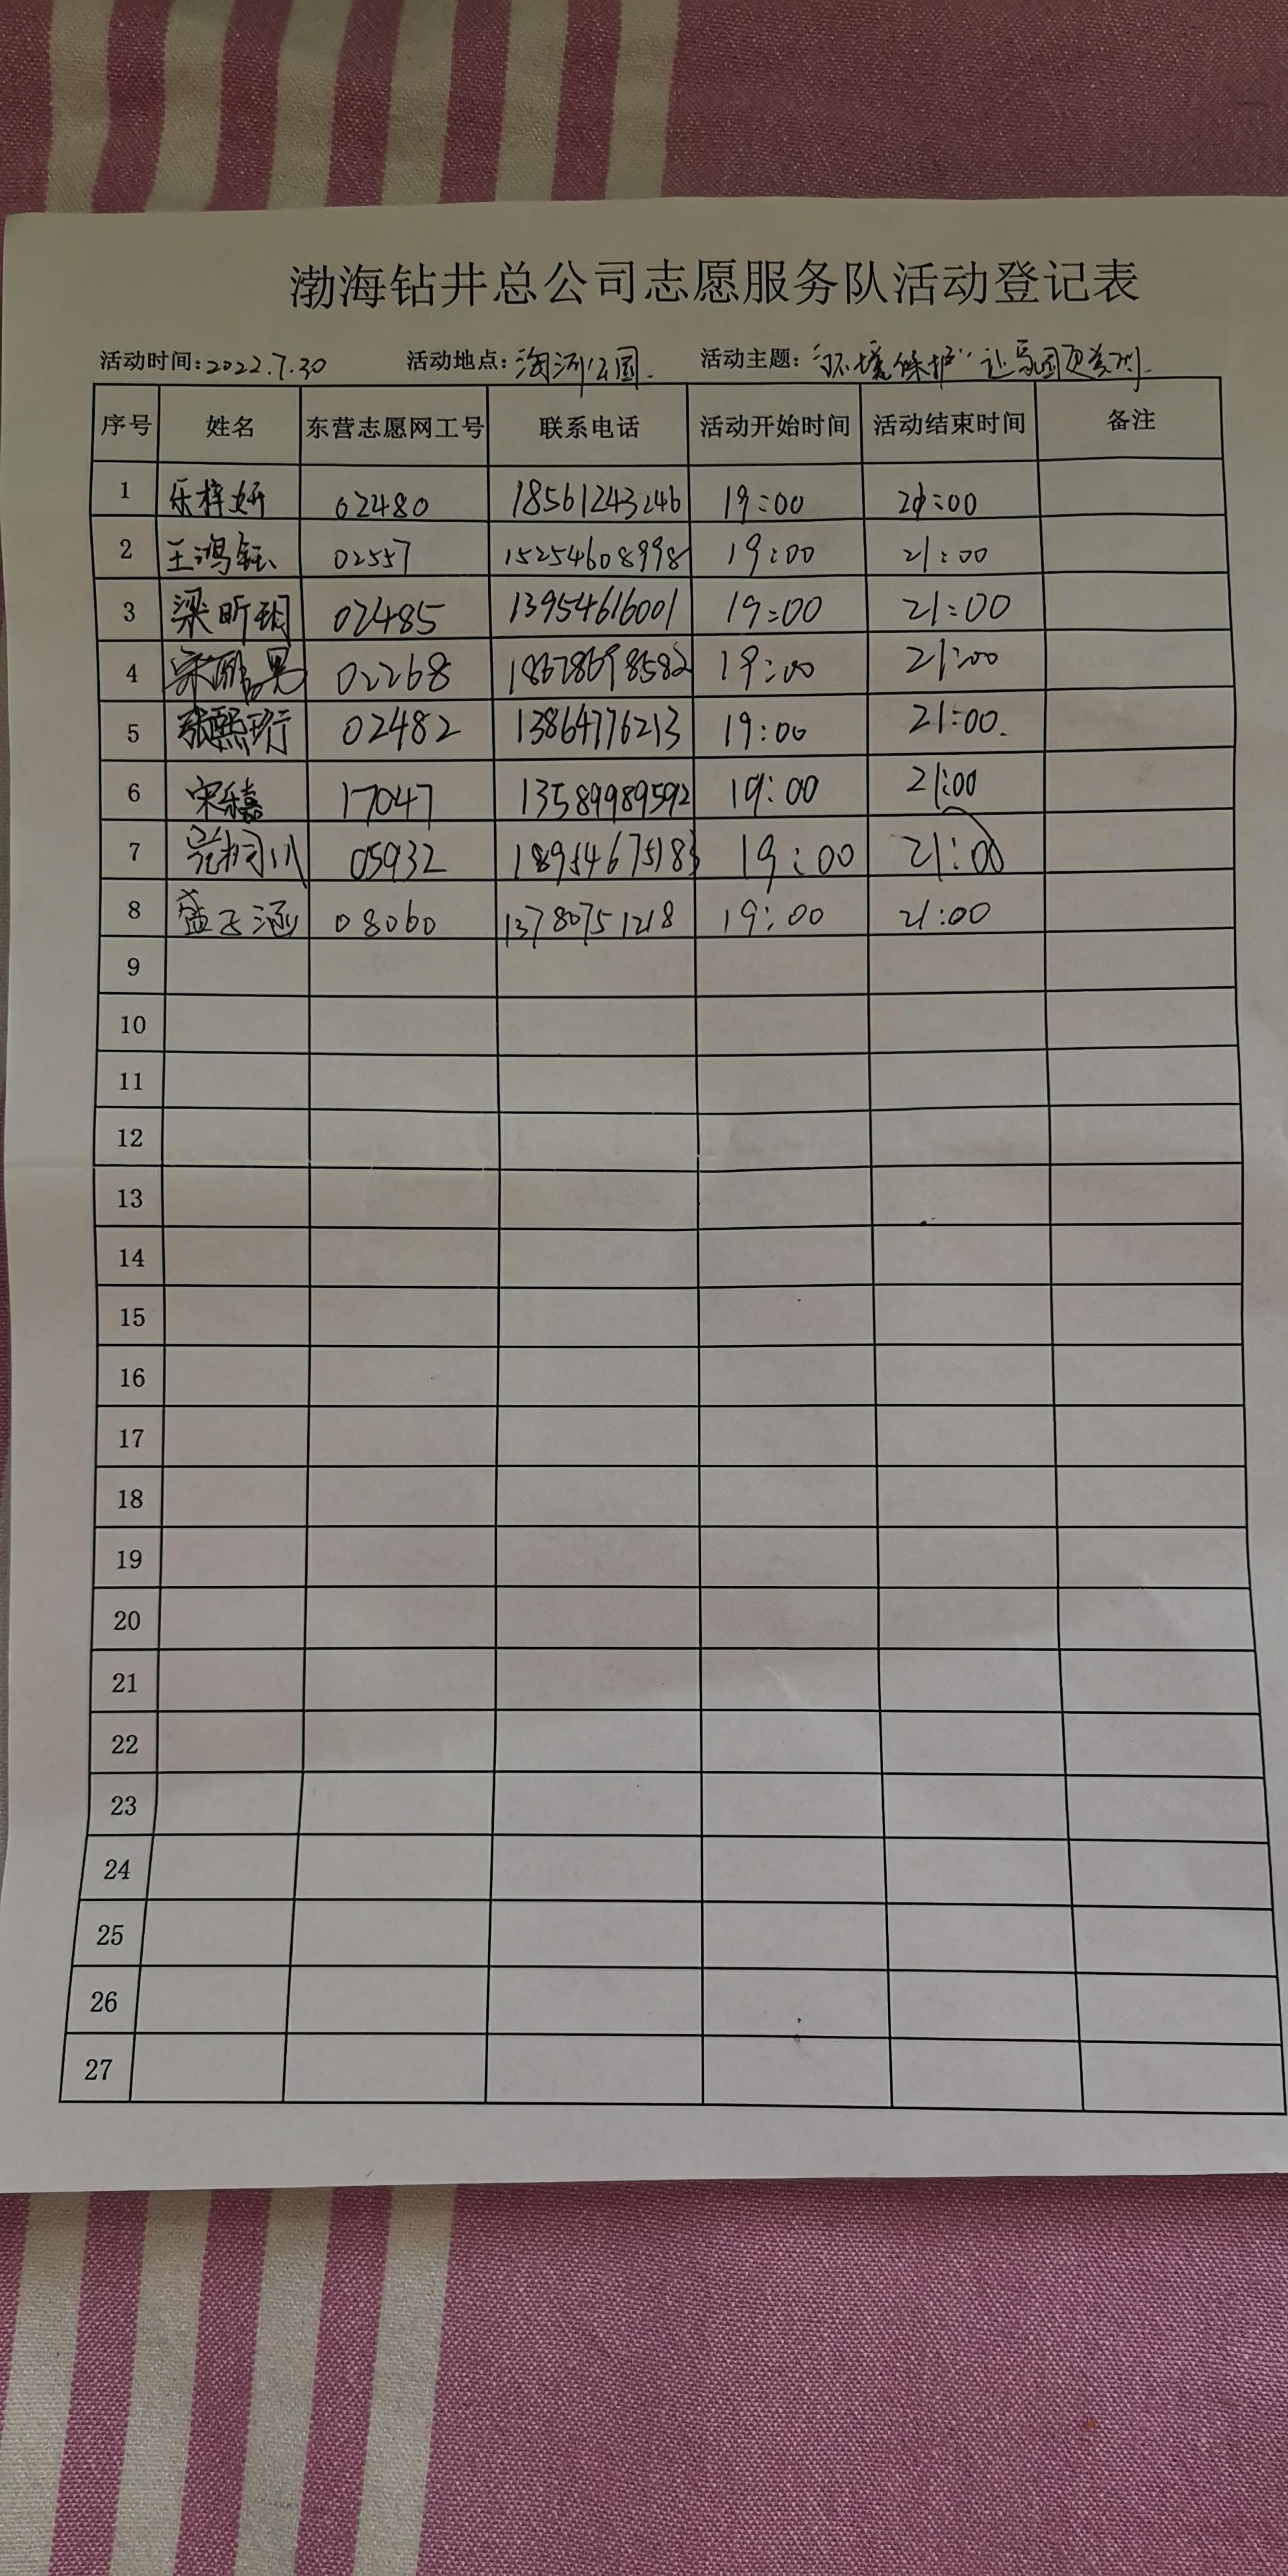 渤海钻井总公司志愿服务队活动登记表
活动时间:2022.7.30 活动地点:淘河公园. 活动主题:"环境保护"让家园更美丽.
序号 姓名 东营志愿网工号 联系电话 活动开始时间 活动结束时间 备注
1 乐梓妍 02480 18561243246 19:00 21:00
2 王鸿钰 02557 15254608998 19:00 21:00
3 梁昕玥 02485 13954616001 19:00 21:00
4 02268 18678698582 19:00 21:00
5 张熙珩 02482 13864776213 19:00 21:00.
6 宋乐嘉 17047 13589989592 19:00 21:00
7 05932 18954675183 19:00 21:00
8 08060 13780751218 19:00 21:00
9
10
11
12
13
14
15
16
17
18
19
20
21
22
23
24
25
26
27